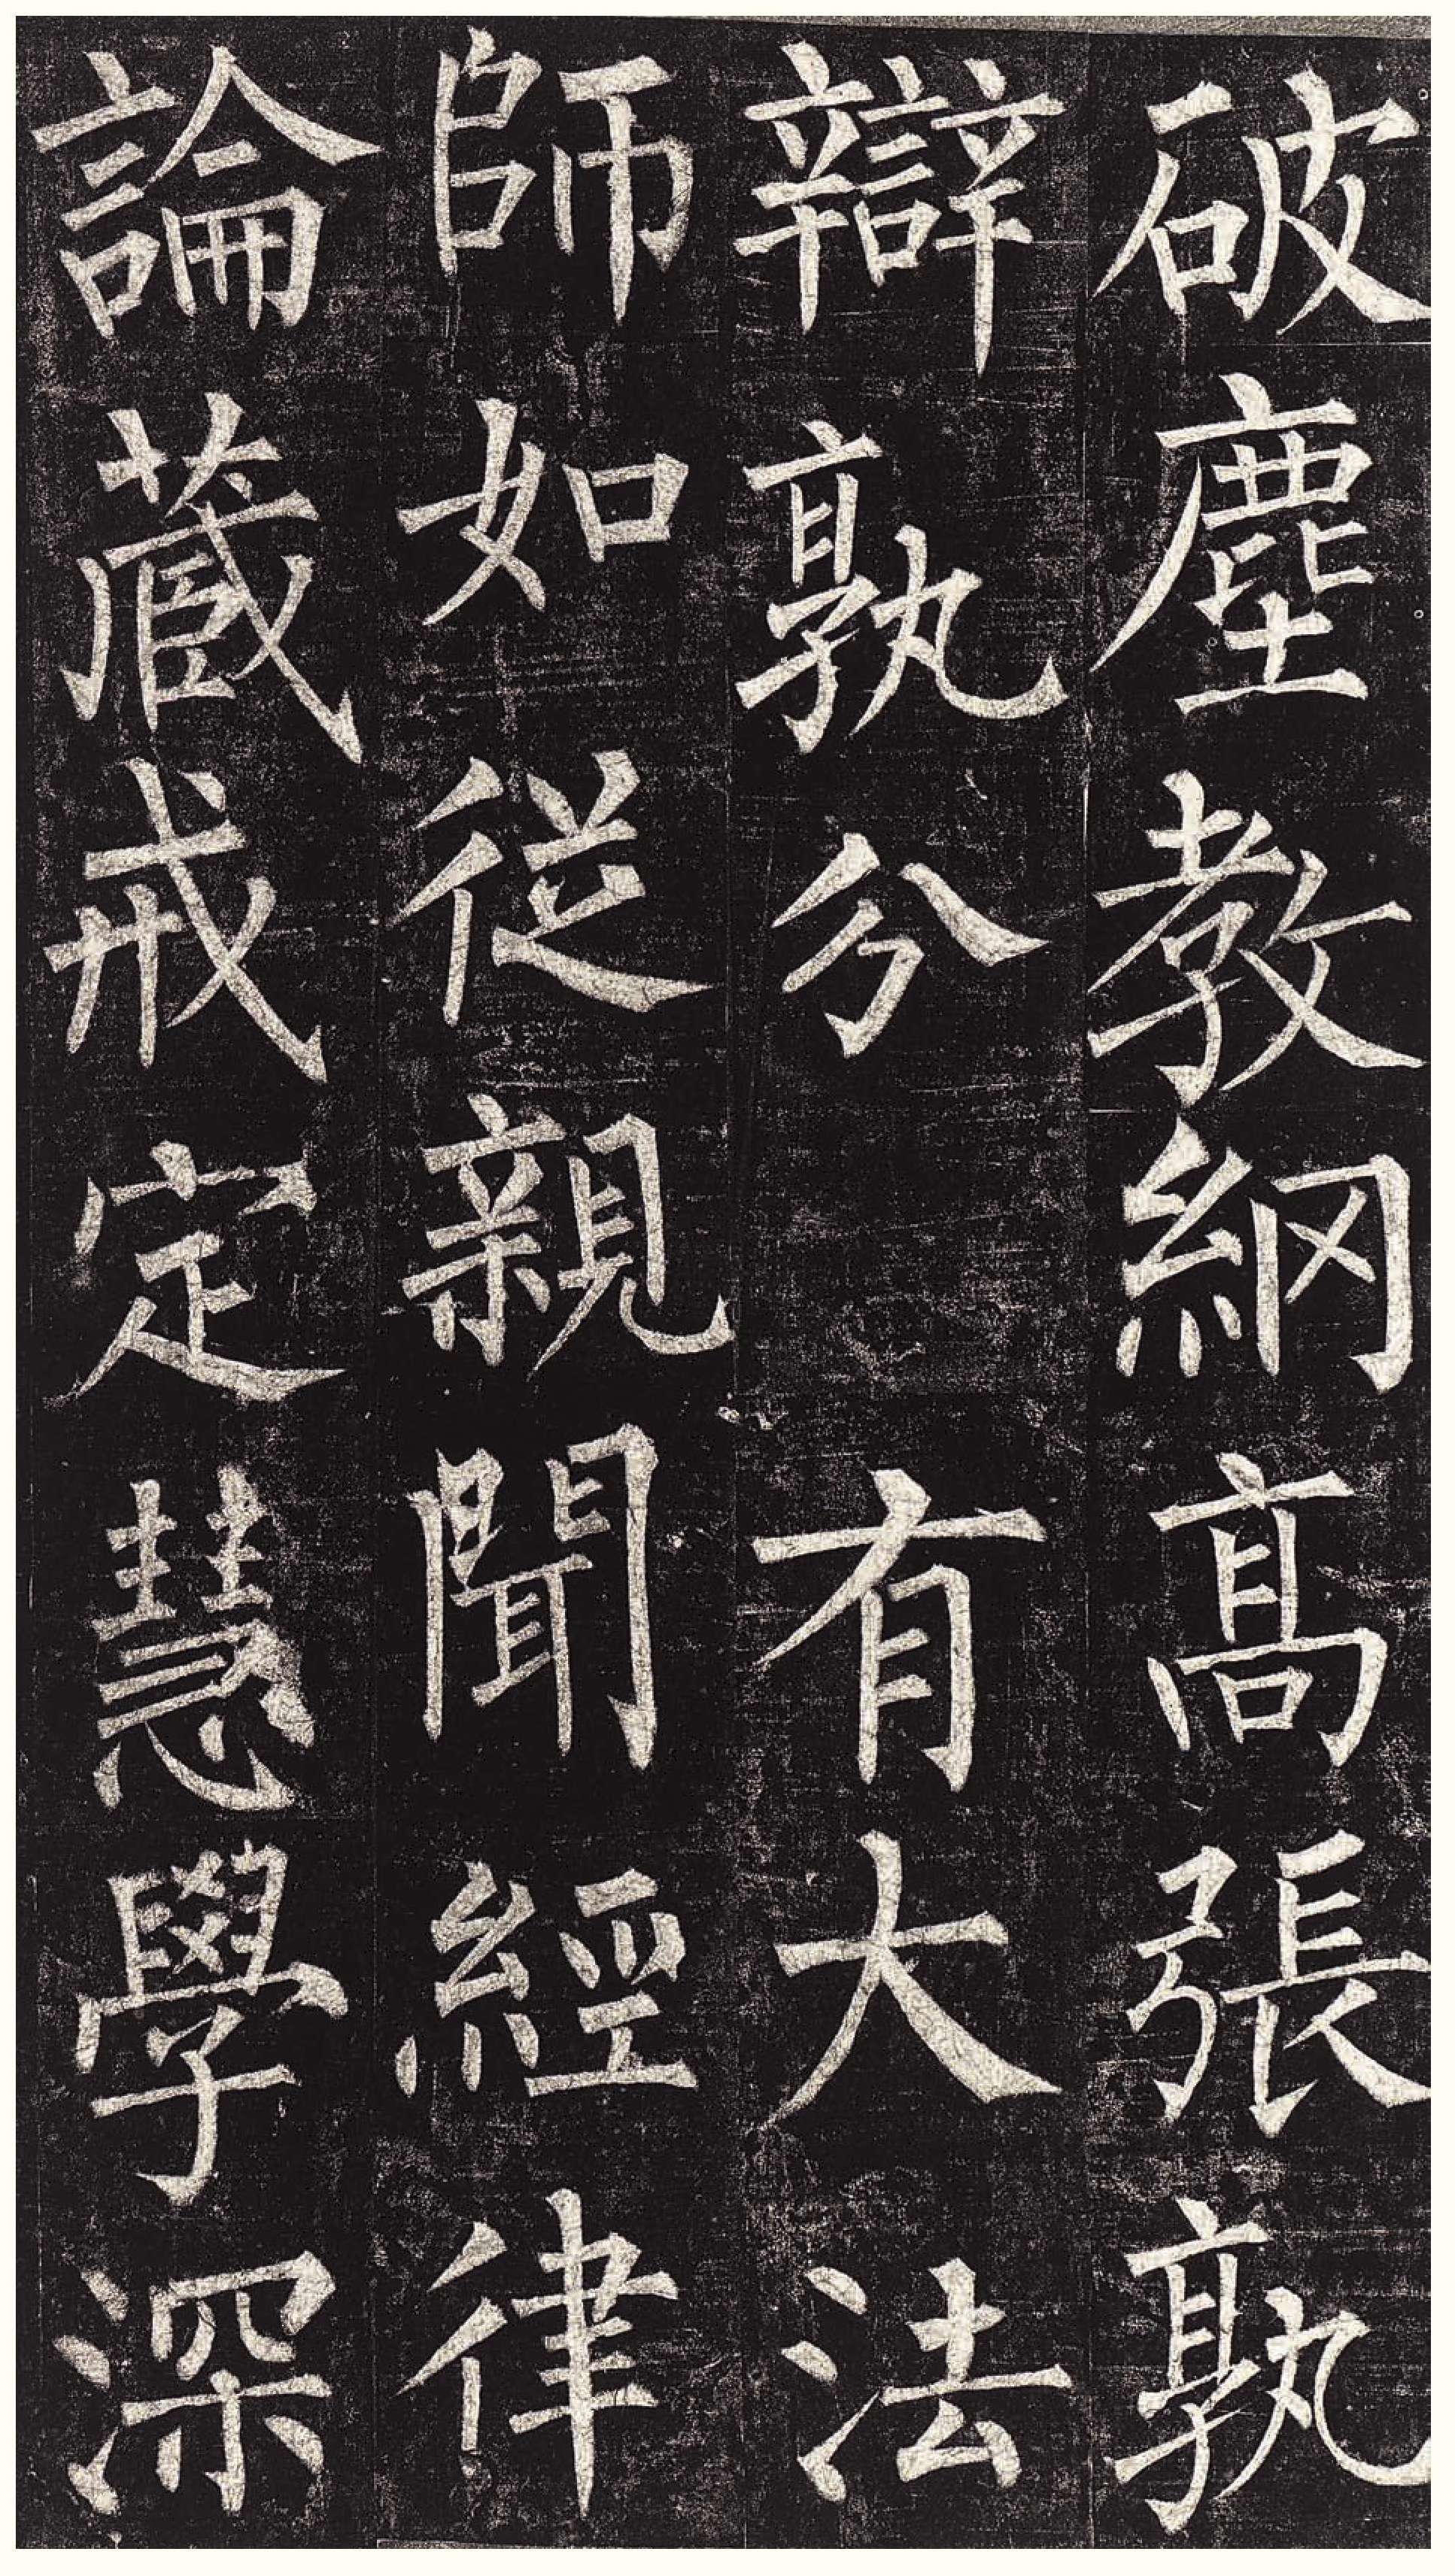 破塵教網高張孰
辯孰分 有大法
師如從親聞經律
論藏戒定慧學深